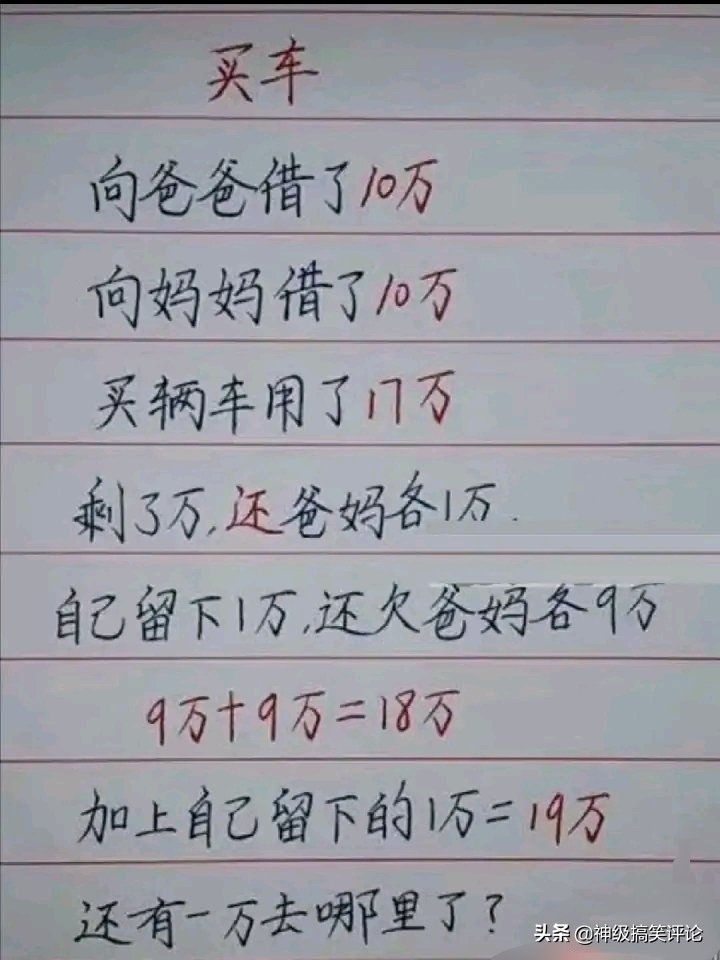 买车
向爸爸借了10万
向妈妈借了10万
买辆车用了17万
剩了万,还爸妈各1万.
自己留下1万,还欠爸妈各9万
9万+9万=18万
加上自己留下的1万=19万
还有一万去哪里了?
头条 @神级搞笑评论